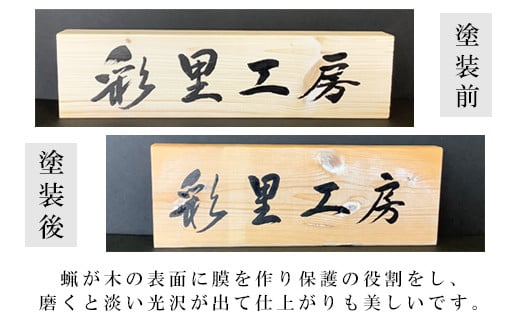 塗装前
彩里工房
塗装後
彩里工房
蝋が木の表面に膜を作り保護の役割をし、
磨くと淡い光沢が出て仕上がりも美しいです。